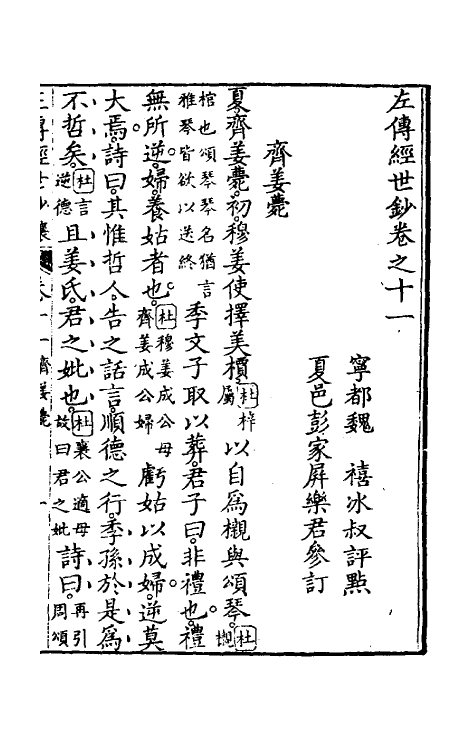 左傳經世鈔卷之十一
寧都魏　禧冰叔評點
夏邑彭家屏樂君參訂
齊姜薨
夏齊姜薨初穆姜使擇美檟杜梓屬以自爲櫬與頌琴杜櫬
棺也頌琴琴名猶言雅琴皆欲以送終季文子取以葬君子曰非禮也禮
無所逆婦養姑者也杜穆姜成公母齊姜成公婦虧姑以成婦逆莫
大焉詩曰其惟哲人告之話言順德之行季孫於是爲
不哲矣杜言逆德且姜氏君之妣也杜襄公適母故曰君之妣詩曰再引周頌
左傳經世鈔襄　卷十一齊姜薨　一